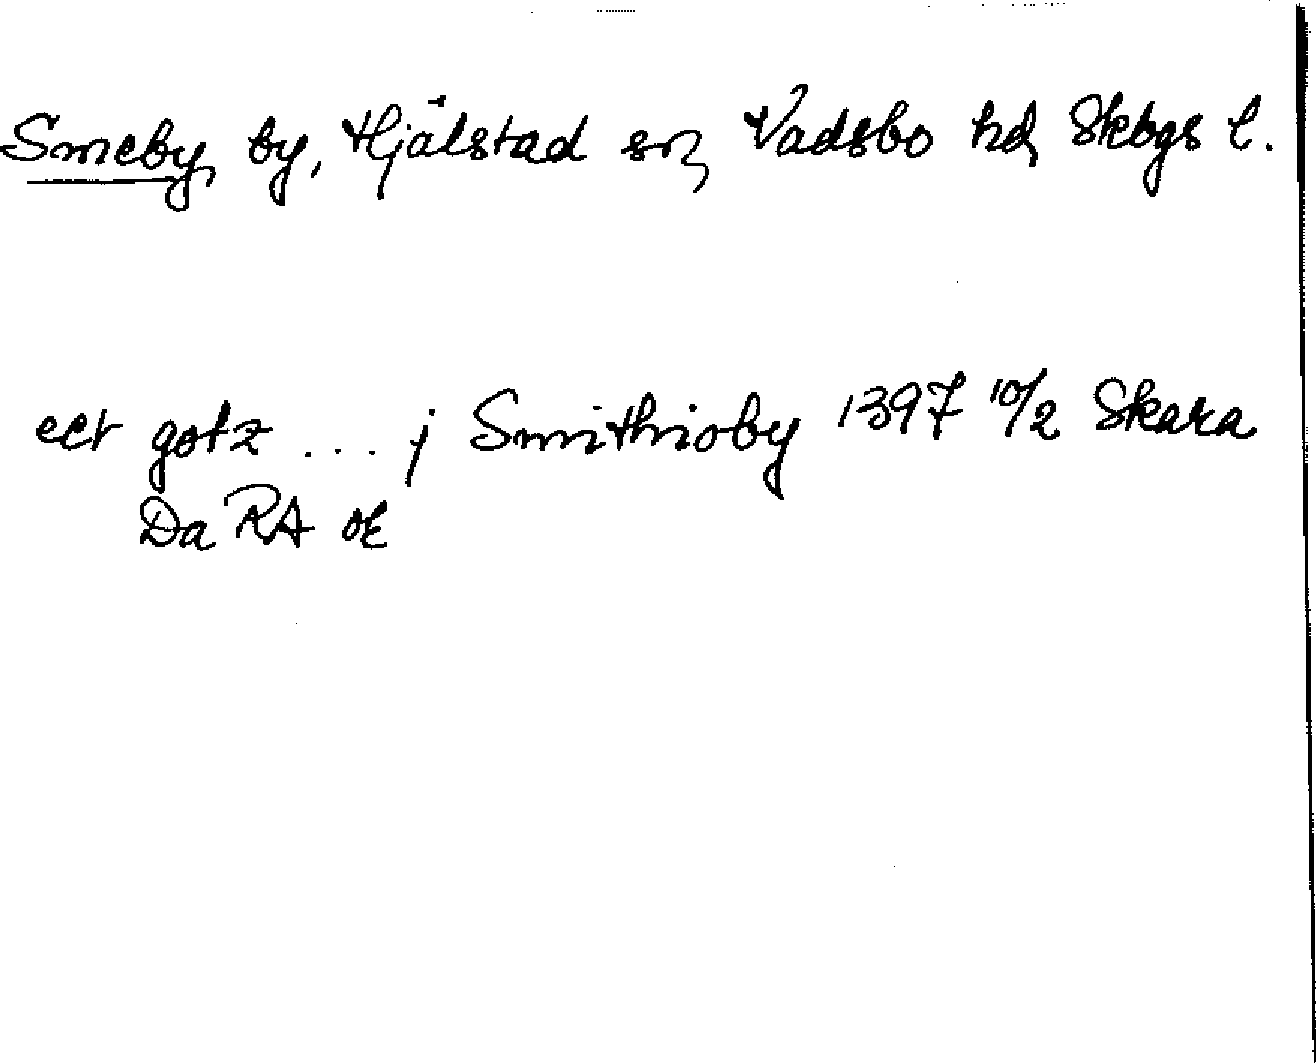 Smeby, by, Hjälstad sn, Vadsbo hd, Skbgs l.
ect gotz ... j Smithioby 1397 10/2 Skara
Da RA or